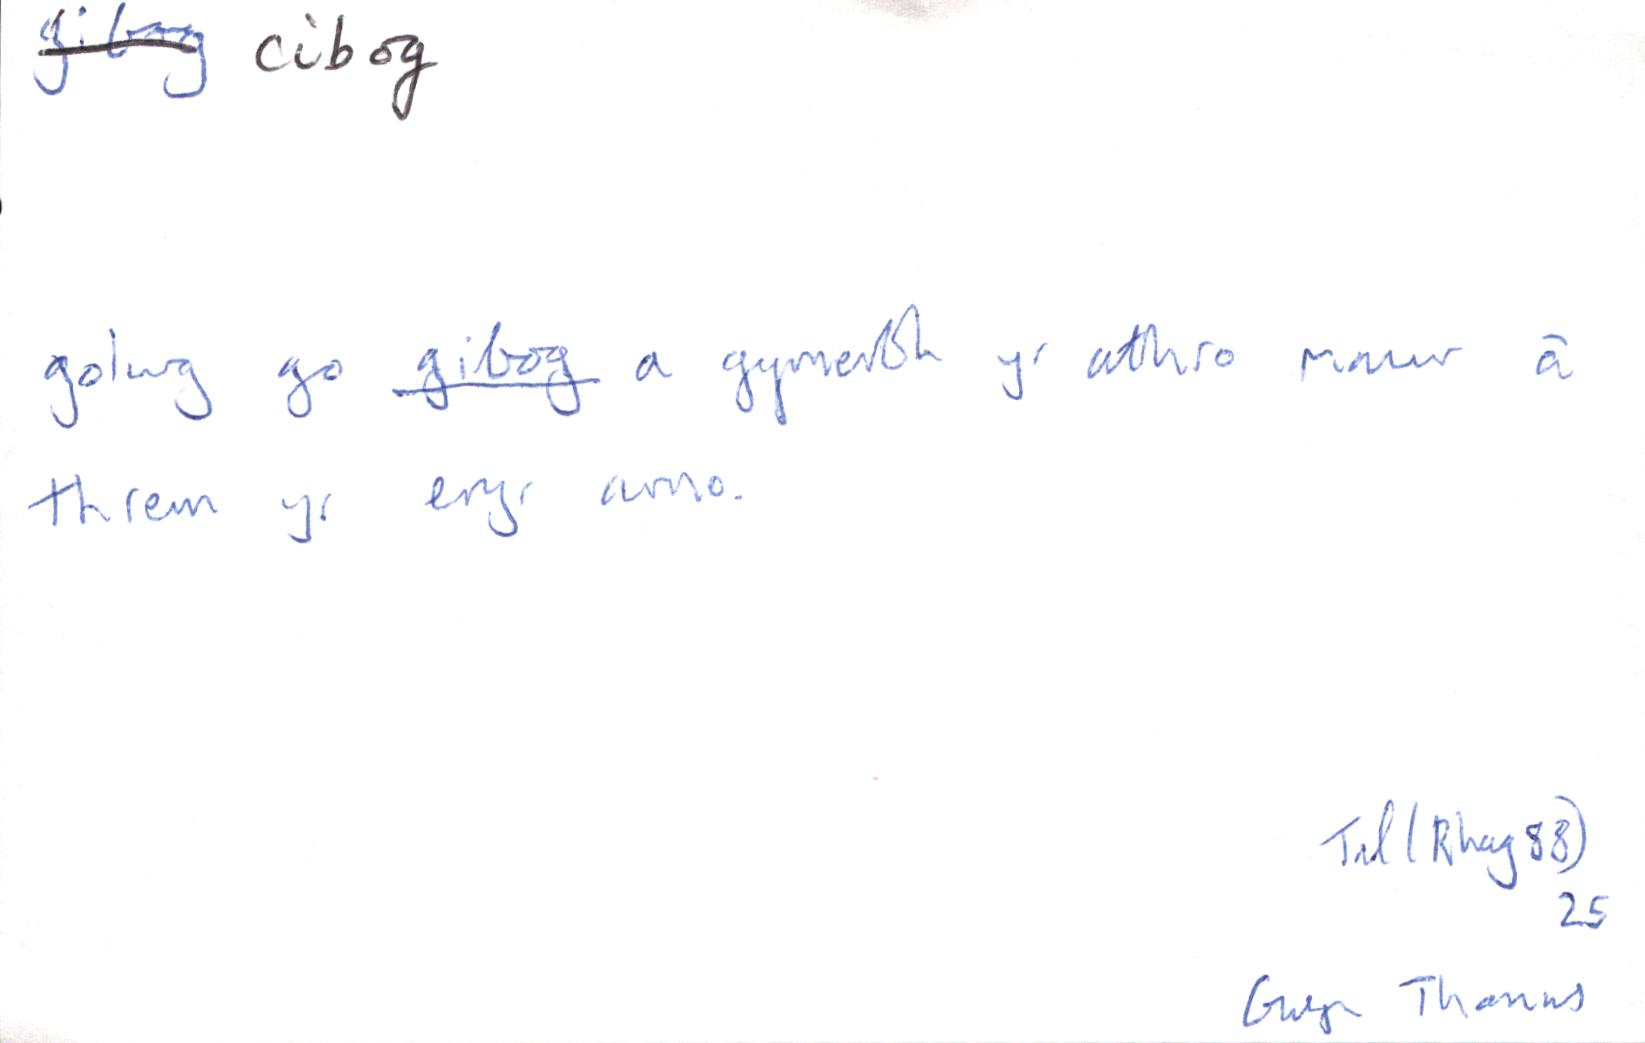 gibog cibog
golwg go gibog a gymerodd yr athro mawr â
threm yr eryr arno.
(Rhag 88)
25
Gwyn Thomas